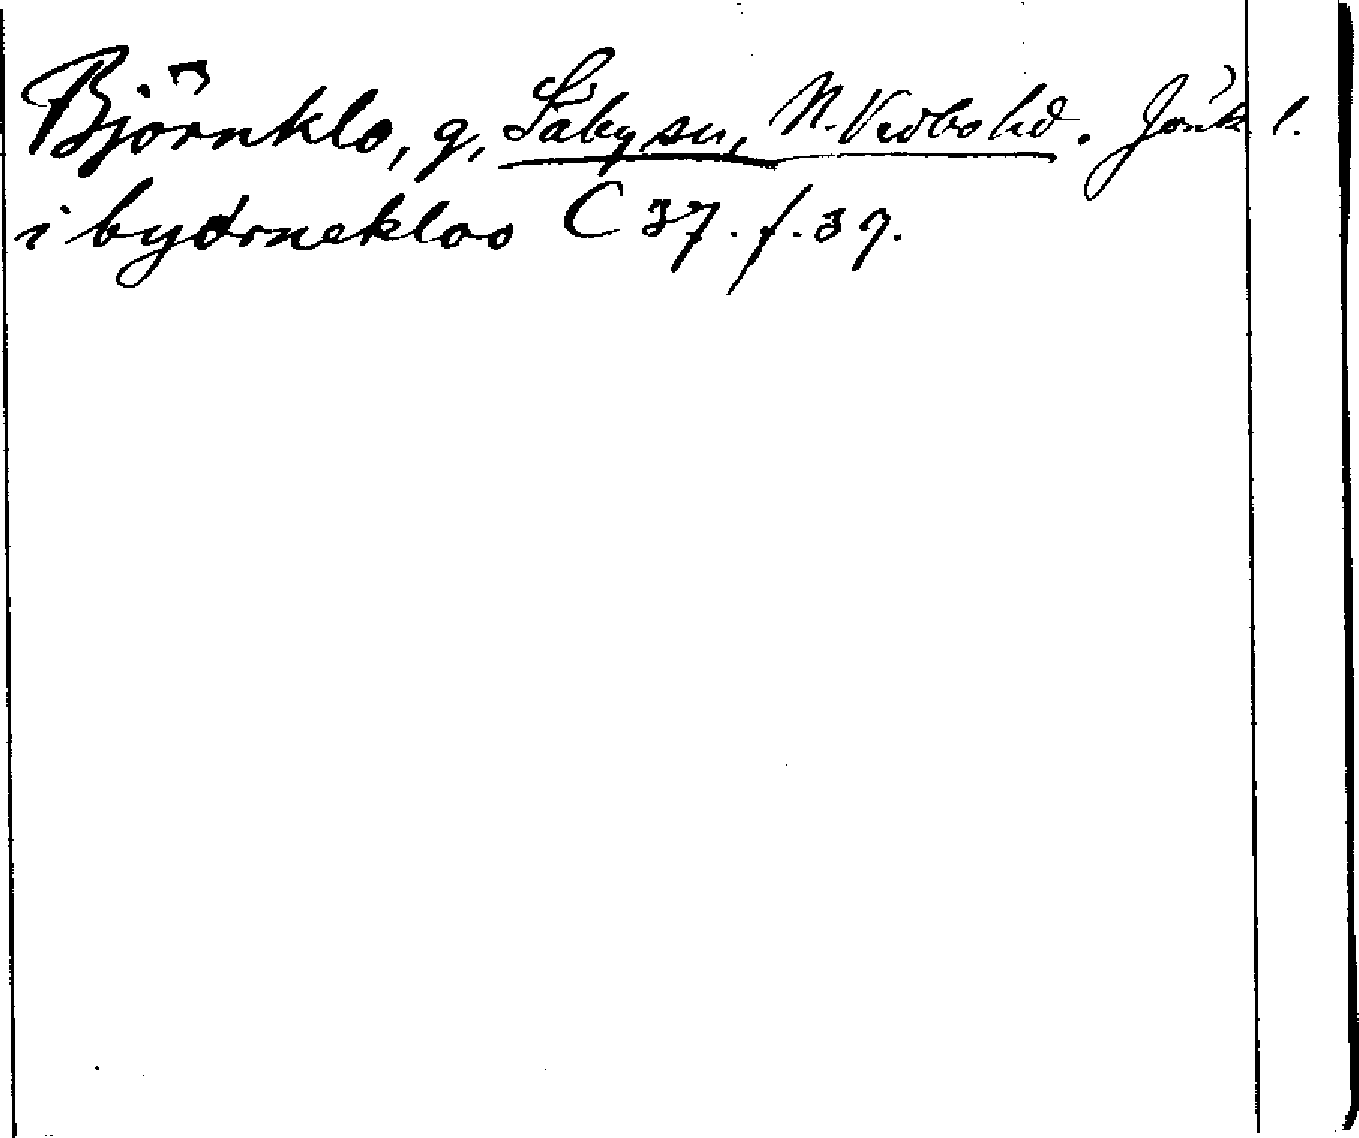 Björnklo, g, Säby sn, N. Vedbo hd. Jönk. l.
i byørnekloo C 37. f. 39.